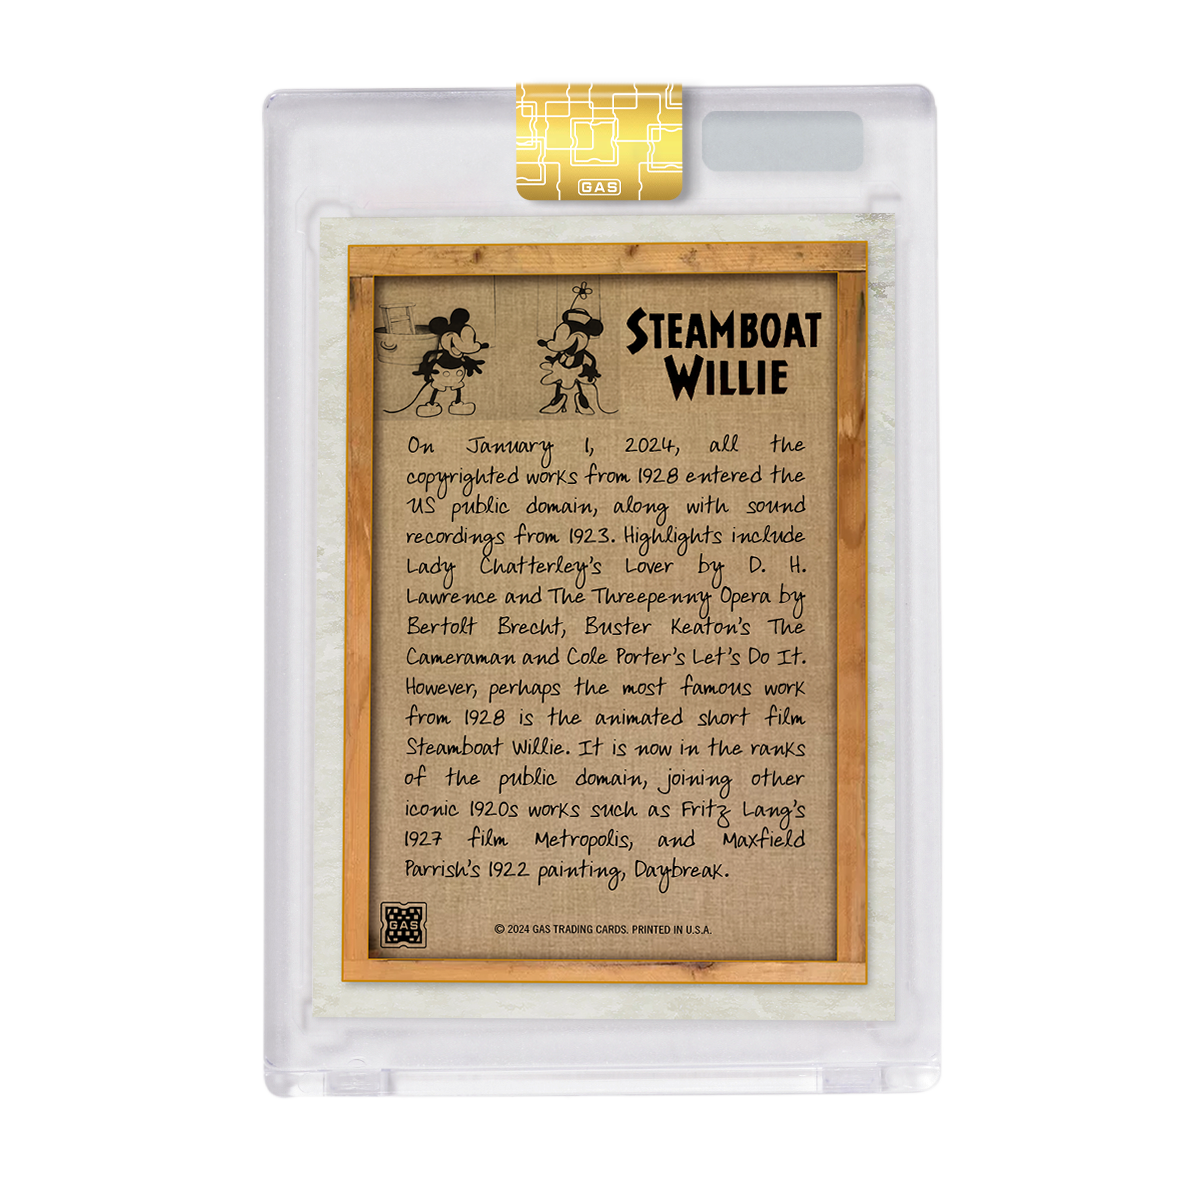 GAS
STEAMBOAT
WILLIE
On January 1, 2024, all the
copyrighted works from 1928 entered the
US public domain, along with sound
recordings from 1923. Highlights include
Lady Chatterley's Lover by D. H.
Lawrence and The Threepenny Opera by
Bertolt Brecht, Buster Keaton's The
Cameraman and Cole Porter's Let's Do It.
However, perhaps the most famous work
from 1928 is the animated short film
Steamboat Willie. It is now in the ranks
of the public domain, joining other
iconic 1920s works such as Fritz Lang's
1927 film Metropolis, and Maxfield
Parrish's 1922 painting, Daybreak.
GAS
© 2024 GAS TRADING CARDS. PRINTED IN U.S.A.